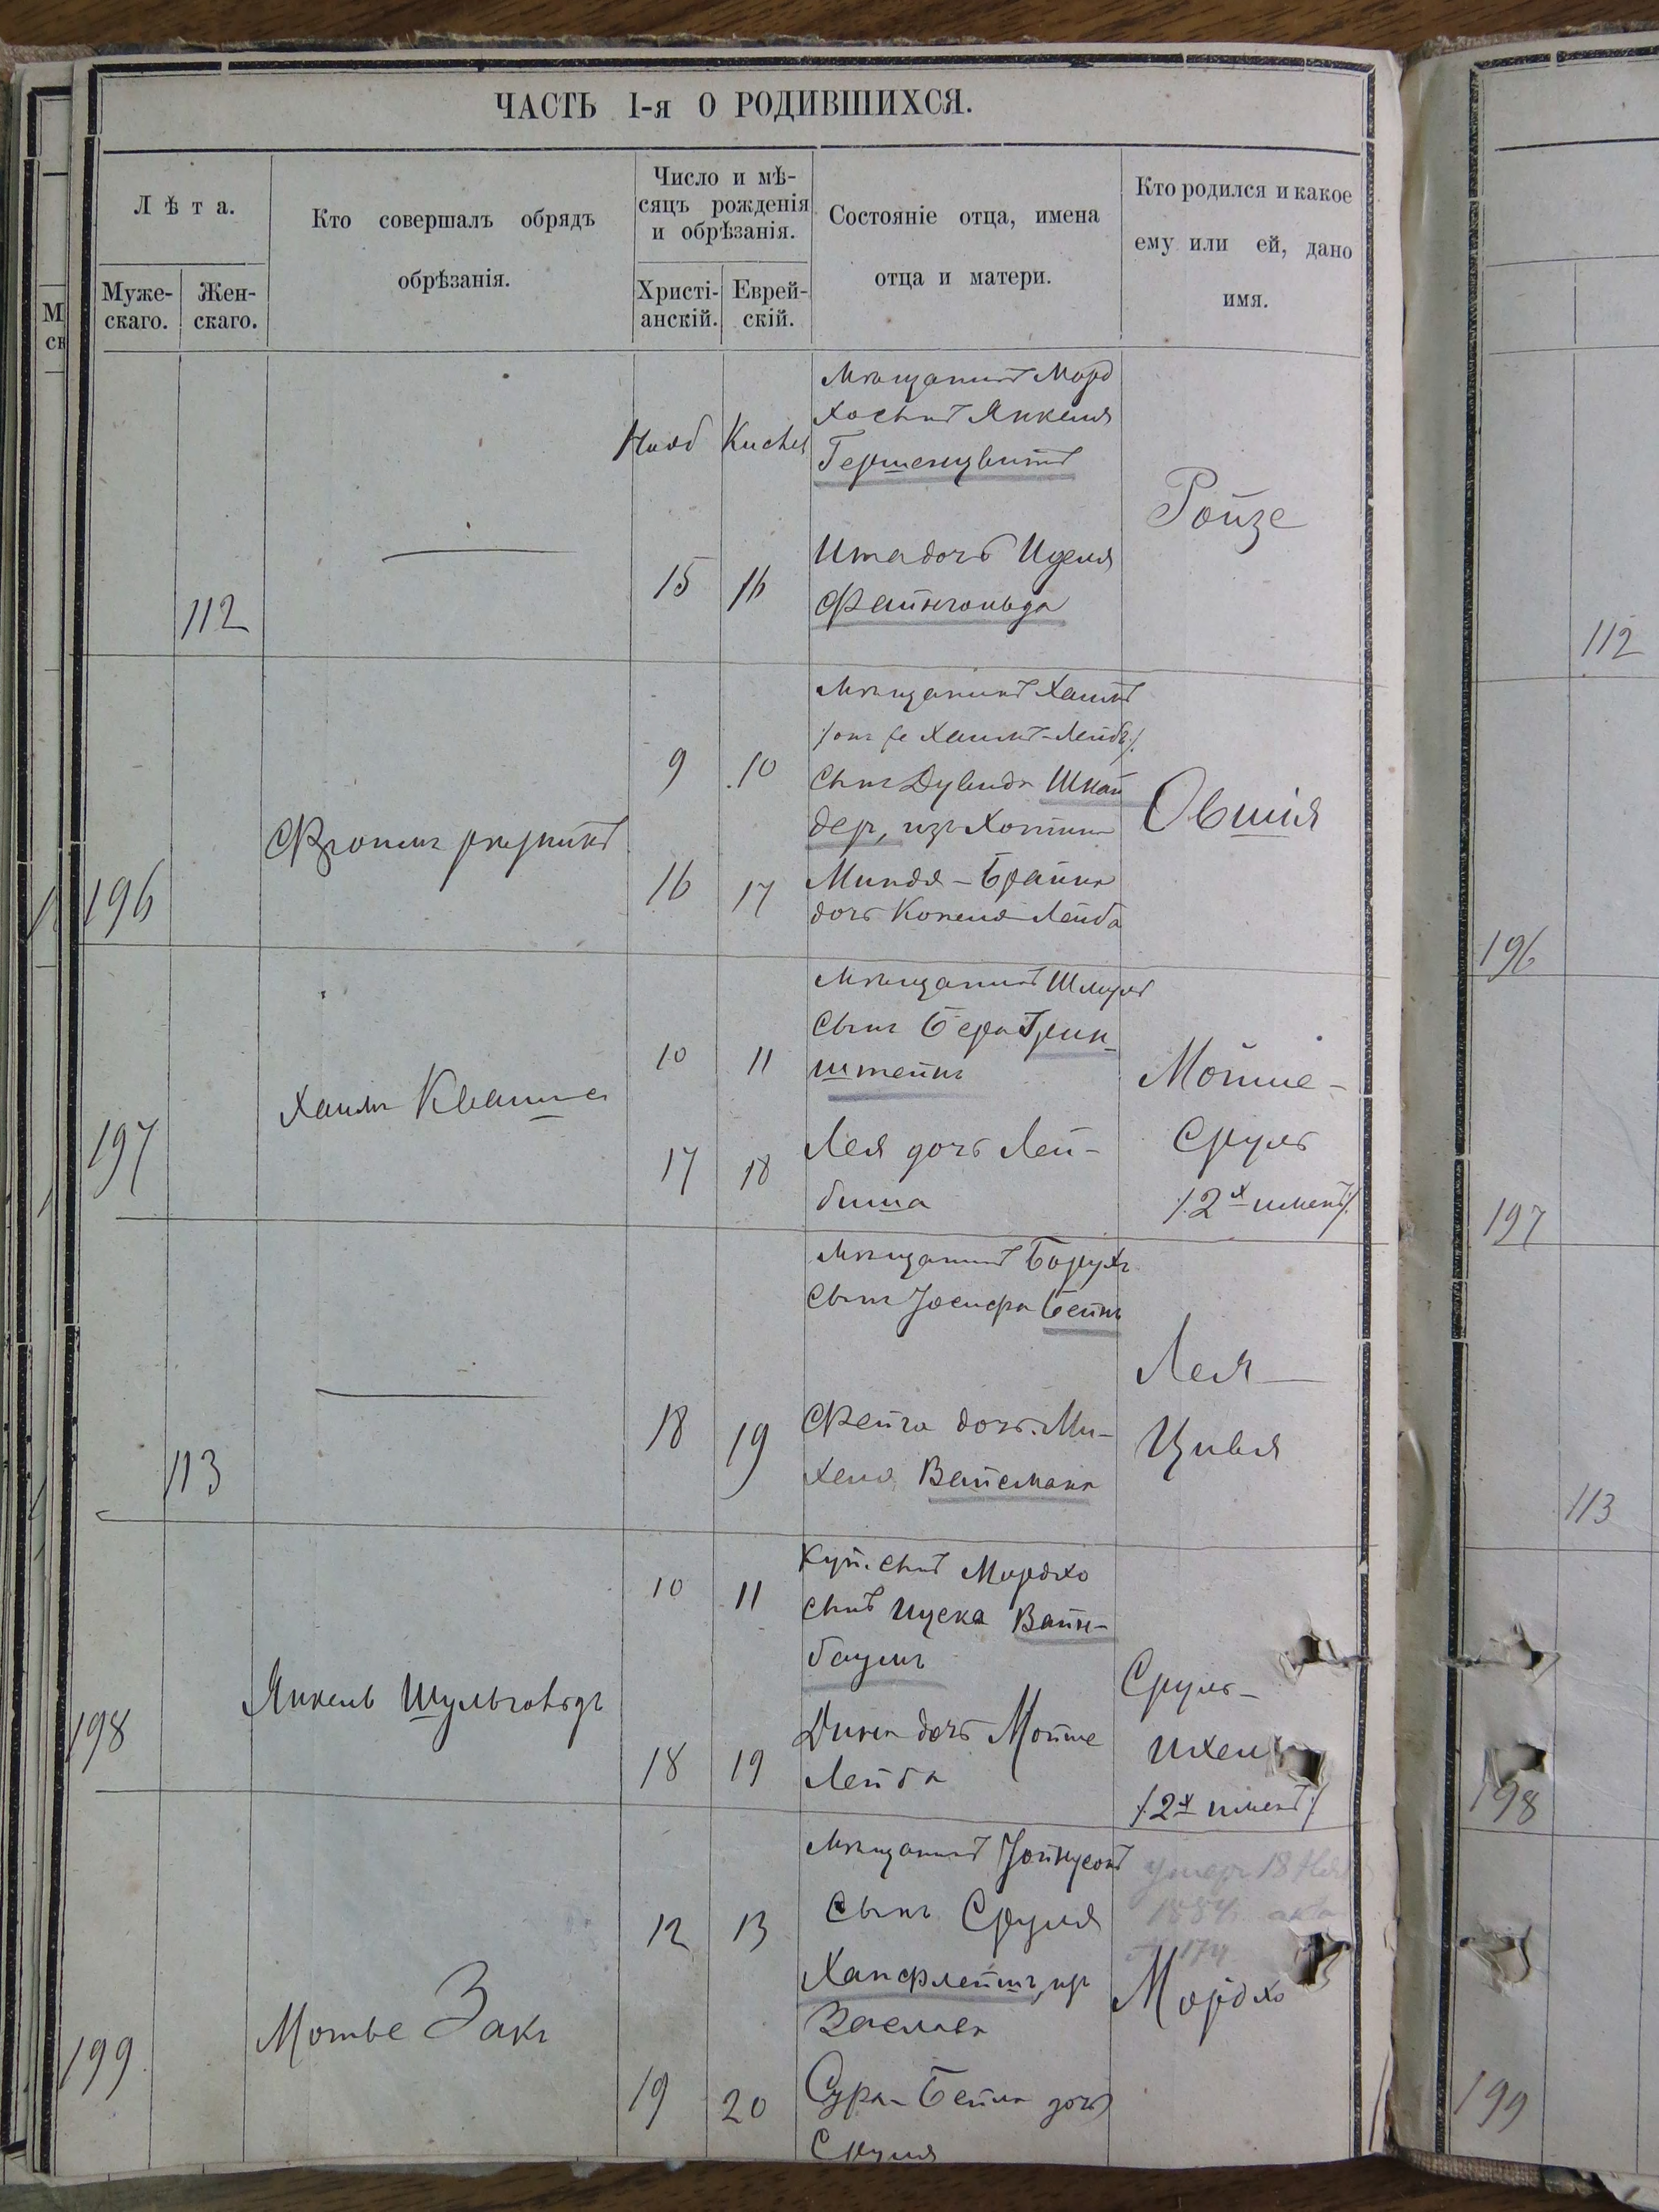 ЧАСТЬ I-я О РОДИВШИХСЯ.
Лѣта.
Муже-
скаго.
Жен-
скаго.
Кто совершалъ обрядъ
обрѣзанія.
Число и мѣ-
сяцъ рожденія
и обрѣзанія.
Христі-
анскій.
Еврей-
скій.
Состояніе отца, имена
отца и матери.
Кто родился и какое
ему или ей, дано
имя.
112
15
16
Мѣщанинъ Морд
хо сынъ Янкеля
Гершенцвитъ
Ита дочь Иделя
Файнгольда
Ройзе
196
9
10
16
17
Мѣщанинъ Хаимъ
/:онъ же Хаимъ-Лейбъ:/
сынъ Дувида Шнай
деръ, изъ Хотина
Миндя-Брайна
дочь Копеля-Лейба
Овшія
197
Хаимъ Кваша
10
11
17
18
Мѣщанинъ Шмуль
сынъ Бера Грин-
штейнъ
Лея дочь Лей-
биша
Мойше-
Сруль
/:2х именъ:/
113
18
19
Мѣщанинъ Борухъ
сынъ Іосифа Бейнъ
Фейга дочь Ми-
хеля Вайсмана
Лея-
Цивля
198
Янкель Шульговъдъ
10
11
18
19
Куп. сынъ Мордхо
сынъ Ицека Вайн-
баумъ
Дина дочь Мойше
Лейба
Сруль-
Ихель
/:2х именъ:/
199
Мотье Закъ
12
13
19
20
Мѣщанинъ
сынъ Сруля
Хапфлейшъ, изъ
Заслава
Сура-Бейла дочь
Сруля
умеръ 18
174
Мордхо
112
196
197
113
198
199